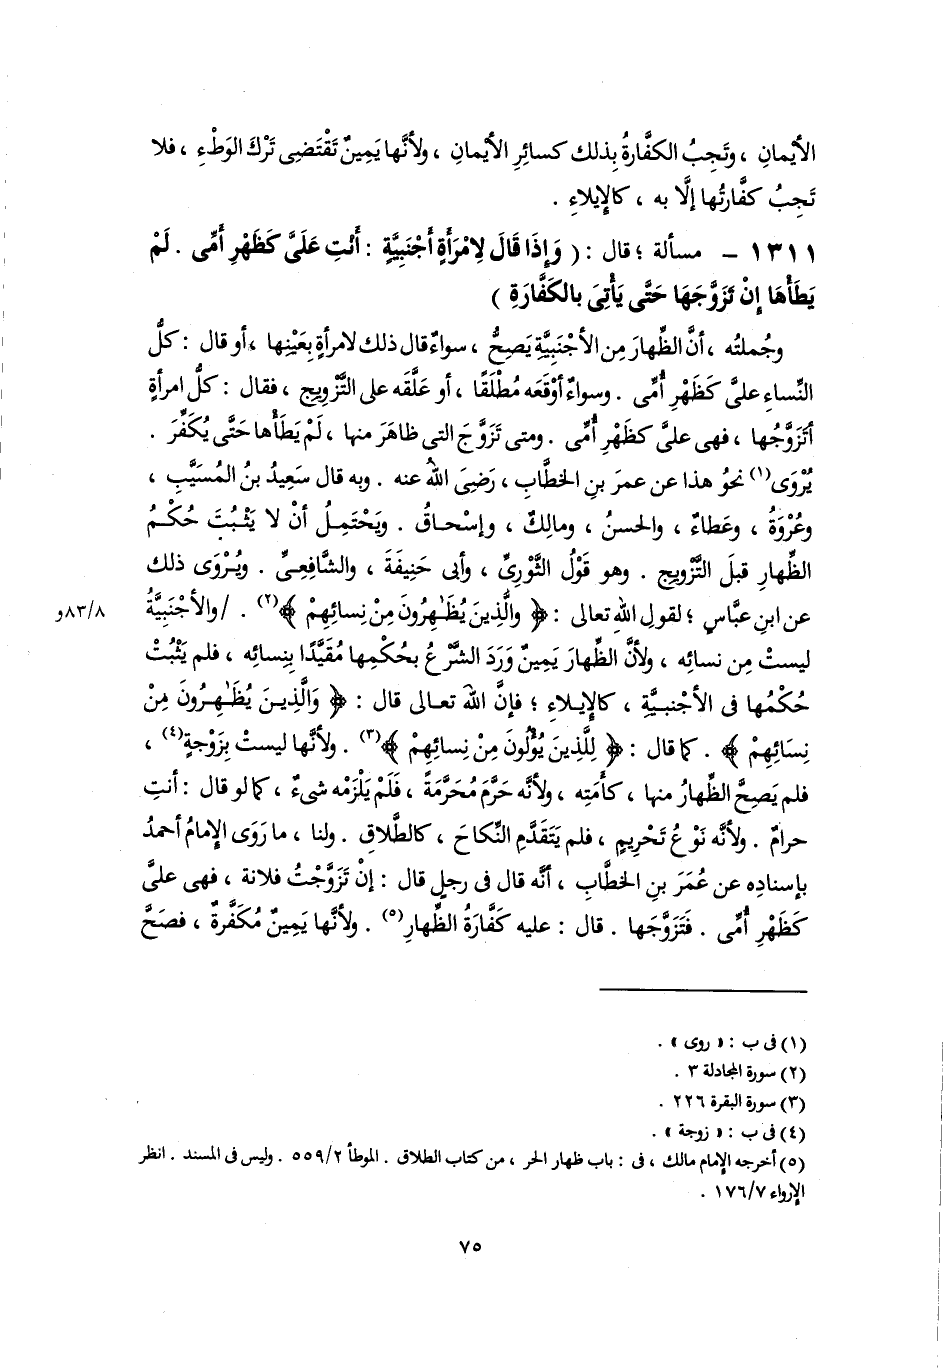 الأيْمانِ ، وتَجِبُ الكفَّارةُ بِذلك كسائرِ الأيْمانِ ، ولأنَّها يَمِينٌ تَقْتَضِى تَرْكَ الوَطْءِ ، فلا
تَجِبُ كفَّارتُها إلَّا به ، كالإِيلاءِ .
١٣١١ – مسألة ؛ قال : ( وَإِذَا قَالَ لِامْرَأَةٍ أَجْنَبِيَّةٍ : أَنْتِ عَلَىَّ كَظَهْرِ أُمِّى . لَمْ
يَطَأْهَا إِنْ تَزَوَّجَهَا حَتَّى يَأْتِىَ بِالكَفَّارَةِ )
وجُملتُه ، أنَّ الظِّهارَ مِن الأجْنَبِيَّةِ يَصِحُّ ، سواءٌ قال ذلك لامرأةٍ بعَيْنِها ، أو قال : كلُّ
النِّساءِ علىَّ كَظَهْرِ أُمِّى . وسواءٌ أوْقَعَه مُطْلَقًا ، أو عَلَّقَه على التَّزْوِيجِ ، فقال : كلُّ امرأةٍ
أتَزَوَّجُها ، فهى علىَّ كظَهْرِ أُمِّى . ومتى تَزَوَّجَ التى ظاهَرَ منها ، لَمْ يَطَأْها حَتَّى يُكَفِّرَ .
يُرْوَى(١) نحوُ هذا عن عمرَ بنِ الخطَّابِ ، رَضِىَ اللهُ عنه . وبه قال سَعِيدُ بنُ المُسَيَّبِ ،
وعُرْوَةُ ، وعَطاءٌ ، والحسنُ ، ومالِكٌ ، وإسْحاقُ . ويَحْتَمِلُ أنْ لا يَثْبُتَ حُكْمُ
الظِّهارِ قبلَ التَّزْوِيجِ . وهو قَوْلُ الثَّوْرِىِّ ، وأبى حَنِيفَةَ ، والشَّافِعِىِّ . ويُرْوَى ذلك
عن ابنِ عبَّاسٍ ؛ لقولِ اللهِ تعالى : ﴿ والَّذِينَ يُظَـٰهِرُونَ مِنْ نِسائِهِمْ ﴾(٢) . /والأجْنَبِيَّةُ
٨٣/٨و
ليستْ مِن نسائِه ، ولأنَّ الظِّهارَ يَمِينٌ وَرَدَ الشَّرْعُ بحُكْمِها مُقَيَّدًا بِنِسائِه ، فلم يَثْبُتْ
حُكْمُها فى الأجْنبيَّةِ ، كالإِيلاءِ ؛ فإنَّ اللهَ تعالى قال : ﴿ وَالَّذِينَ يُظَـٰهِرُونَ مِنْ
نِسَائِهِمْ ﴾ . كما قال : ﴿ لِلَّذِينَ يُؤْلُونَ مِنْ نِسائِهِمْ ﴾(٣) . ولأنَّها ليستْ بِزَوْجةٍ(٤) ،
فلم يَصِحَّ الظِّهارُ منها ، كأَمَتِه ، ولأنَّه حَرَّمَ مُحَرَّمَةً ، فَلَمْ يَلْزَمْه شىءٌ ، كما لو قال : أنتِ
حرامٌ . ولأنَّه نَوْعُ تَحْرِيمٍ ، فلم يَتَقَدَّمِ النِّكاحَ ، كالطَّلاقِ . ولنا ، ما رَوَى الإِمامُ أحمدُ
بإسنادِه عن عُمَرَ بنِ الخطَّابِ ، أنَّه قال فى رجلٍ قال : إنْ تَزَوَّجْتُ فلانة ، فهى علىَّ
كَظَهْرِ أُمِّى . فتَزَوَّجَها . قال : عليه كَفَّارَةُ الظِّهارِ(٥) . ولأنَّها يَمِينٌ مُكَفَّرةٌ ، فصَحَّ
(١) فى ب : « روى » .
(٢) سورة المجادلة ٣ .
(٣) سورة البقرة ٢٢٦ .
(٤) فى ب : « زوجة » .
(٥) أخرجه الإمام مالك ، فى : باب ظهار الحر ، من كتاب الطلاق . الموطأ ٥٥٩/٢ . وليس فى المسند . انظر
الإرواء ١٧٦/٧ .
٧٥